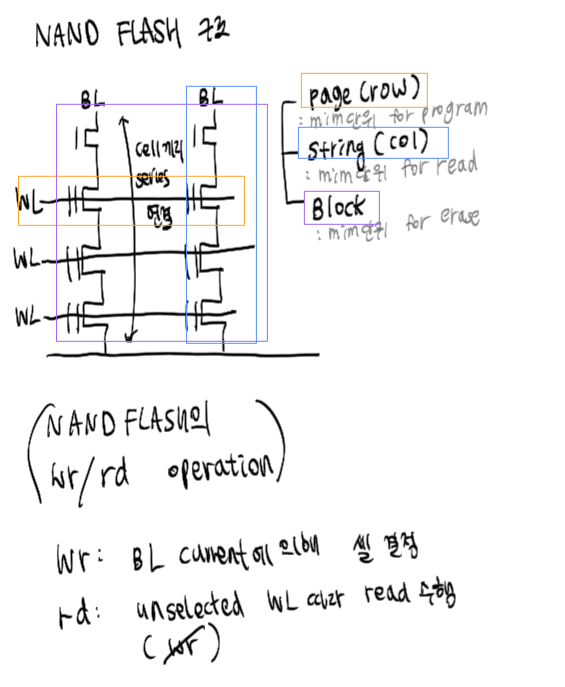 NAND FLASH 구조
BL
BL
cell끼리
series
연결
WL
WL
WL
page (row)
: mim단위 for program
string (col)
: mim단위 for read
Block
: mim단위 for erase
(NAND FLASH의
wr/rd operation)
wr: BL current에 의해 셀 결정
rd: unselected WL 따라 read 수행
(wr)